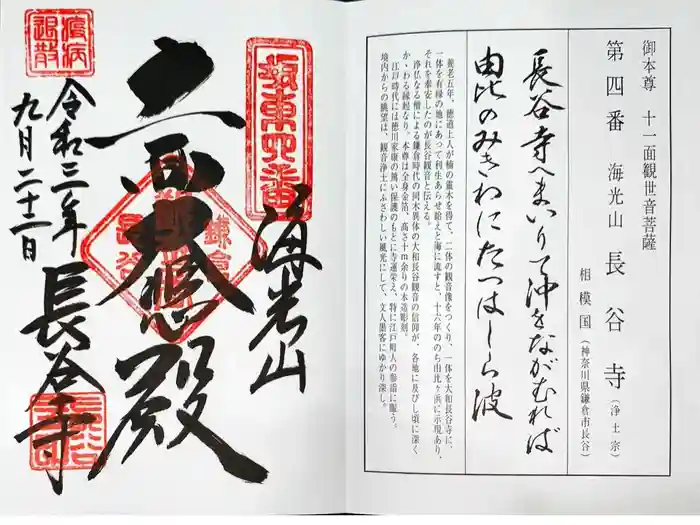 御本尊 十一面観世音菩薩
第四番 海光山 長谷寺(浄土宗)
相模国(神奈川県鎌倉市長谷)
長谷寺へまいりて沖をながむれば
由比のみぎわにたつはしら波
養老五年、徳道上人が楠の霊木を得て、二体の観音像をつくり、一体を大和長谷寺に、
一体を有縁の地にあって利生あらせ給えと海に流すと、十六年ののち由比ヶ浜に示現あり、
それを奉安したのが長谷観音と伝える。
浄仏なる僧による鎌倉時代の同木異体の大和長谷観音の信仰が、各地に及びし頃に深く
かゝわる縁起なり。本尊は全身金箔、高さ十m余りの木造彫刻。
江戸時代には徳川家康の篤い保護のもとに寺運栄え、特に江戸町人の参詣に賑う。
境内からの眺望は、観音浄土にふさわしい風光にして、文人墨客にゆかり深し。
坂東四番
海光山
大悲殿
鎌倉
長谷
疫病
退散
令和三年
九月二十二日
長谷寺